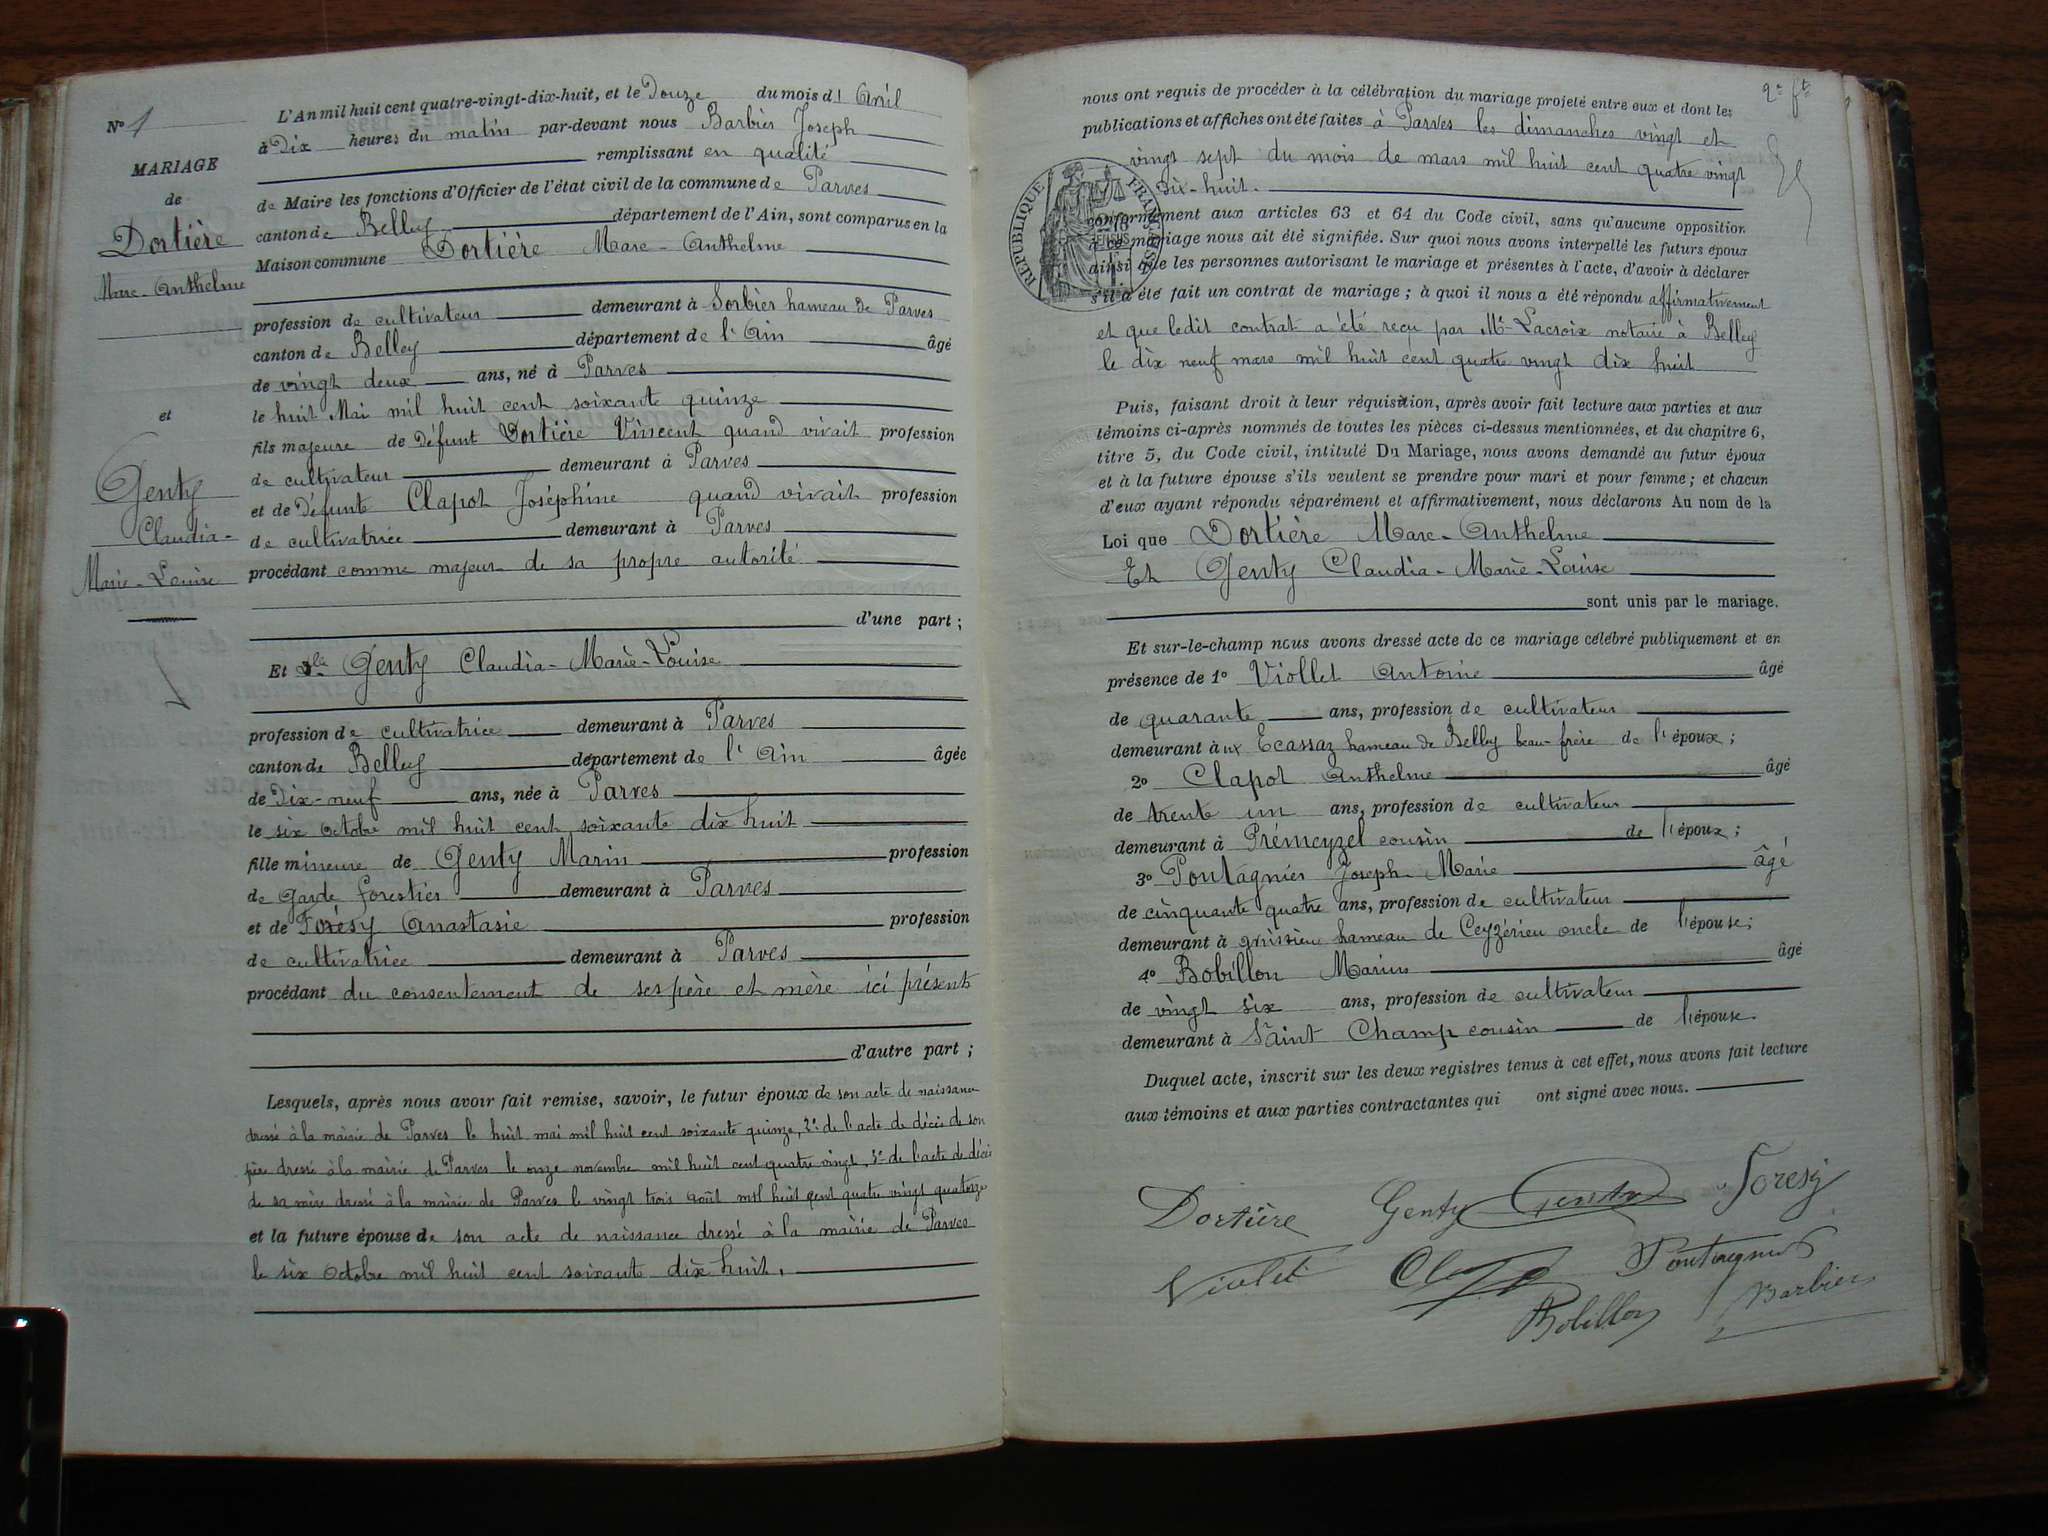 N° 1
MARIAGE
de
Dortière
Marc-Anthelme
et
Genty
Claudia-
Marie-Louise
L'An mil huit cent quatre-vingt-dix-huit, et le Douze du mois d' Avril
à Dix heures du matin par-devant nous Barbier Joseph
remplissant en qualité
de Maire les fonctions d'Officier de l'état civil de la commune de Parves
canton de Belley département de l'Ain, sont comparus en la
Maison commune Dortière Marc-Anthelme
profession de cultivateur demeurant à Sorbier hameau de Parves
canton de Belley département de l'Ain âgé
de vingt deux ans, né à Parves
le huit Mai mil huit cent soixante quinze
fils majeure de Défunt Dortière Vincent quand vivait profession
de cultivateur demeurant à Parves
et de Défunte Clapot Joséphine quand vivait profession
de cultivatrice demeurant à Parves
procédant comme majeur de sa propre autorité
d'une part ;
Et Dlle Genty Claudia-Marie-Louise
profession de cultivatrice demeurant à Parves
canton de Belley département de l'Ain âgée
de Dix-neuf ans, née à Parves
le six octobre mil huit cent soixante dix huit
fille mineure de Genty Marin profession
de Garde forestier demeurant à Parves
et de Forésy Anastasie profession
de cultivatrice demeurant à Parves
procédant du consentement de ses père et mère ici présents
d'autre part ;
Lesquels, après nous avoir fait remise, savoir, le futur époux de son acte de naissance
dressé à la mairie de Parves le huit mai mil huit cent soixante quinze, 2° de l'acte de décès de son
père dressé à la mairie de Parves le onze novembre mil huit cent quatre vingt, 3° de l'acte de décès
de sa mère dressé à la mairie de Parves le vingt trois août mil huit cent quatre vingt quatorze
et la future épouse de son acte de naissance dressé à la mairie de Parves
le six Octobre mil huit cent soixante dix huit.
2e ft
nous ont requis de procéder à la célébration du mariage projeté entre eux et dont les
publications et affiches ont été faites à Parves les dimanches vingt et
vingt sept du mois de mars mil huit cent quatre vingt
dix-huit.
RÉPUBLIQUE FRANÇAISE
conformément aux articles 63 et 64 du Code civil, sans qu'aucune opposition
à ce mariage nous ait été signifiée. Sur quoi nous avons interpellé les futurs époux
ainsi que les personnes autorisant le mariage et présentes à l'acte, d'avoir à déclarer
s'il a été fait un contrat de mariage ; à quoi il nous a été répondu affirmativement
et que ledit contrat a été reçu par Me Lacroix notaire à Belley
le dix neuf mars mil huit cent quatre vingt dix huit
Puis, faisant droit à leur réquisition, après avoir fait lecture aux parties et aux
témoins ci-après nommés de toutes les pièces ci-dessus mentionnées, et du chapitre 6,
titre 5, du Code civil, intitulé Du Mariage, nous avons demandé au futur époux
et à la future épouse s'ils veulent se prendre pour mari et pour femme ; et chacun
d'eux ayant répondu séparément et affirmativement, nous déclarons Au nom de la
Loi que Dortière Marc-Anthelme
Et Genty Claudia-Marie-Louise
sont unis par le mariage.
Et sur-le-champ nous avons dressé acte de ce mariage célébré publiquement et en
présence de 1° Viollet Antoine âgé
de quarante ans, profession de cultivateur
demeurant aux Ecassaz hameau de Belley beau-frère de l'époux ;
2° Clapot Anthelme âgé
de trente un ans, profession de cultivateur
demeurant à Prémeyzel cousin de l'époux ;
3° Pontagnier Joseph-Marie âgé
de cinquante quatre ans, profession de cultivateur
demeurant à hameau de Ceyzérieu oncle de l'épouse ;
4° Bobillon Marius âgé
de vingt six ans, profession de cultivateur
demeurant à Saint Champ cousin de l'épouse
Duquel acte, inscrit sur les deux registres tenus à cet effet, nous avons fait lecture
aux témoins et aux parties contractantes qui ont signé avec nous.
Dortière Genty Genty Foresy
Violet Pontagnier
Bobillon Barbier